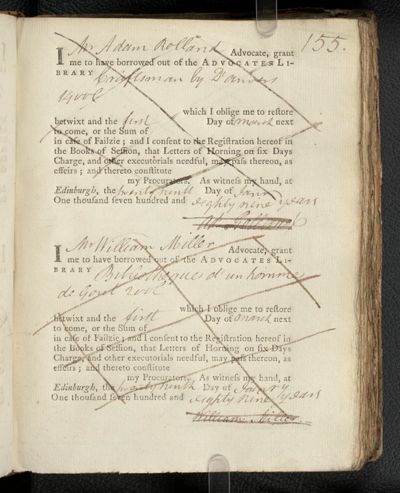 155.
I Mr Adam Rolland Advocate, grant
me to have borrowed out of the ADVOCATES LI-
BRARY Craftsman by D'anvers
which I oblige me to restore
betwixt and the first Day of March next
to come, or the Sum of
in case of Failzie; and I consent to the Registration hereof in
the Books of Session, that Letters of Horning on six Days
Charge, and other executorials needful, may pass thereon, as
effeirs; and thereto constitute
my Procurators. As witness my hand, at
Edinburgh, the twenty ninth Day of Janry
One thousand seven hundred and eighty nine years
Ad. Rolland
I Mr William Miller Advocate, grant
me to have borrowed out of the ADVOCATES LI-
BRARY Bibliotheque d'un homme
de Gout 2 vol
which I oblige me to restore
betwixt and the first Day of March next
to come, or the Sum of
in case of Failzie; and I consent to the Registration hereof in
the Books of Session, that Letters of Horning on six Days
Charge, and other executorials needful, may pass thereon, as
effeirs; and thereto constitute
my Procurators. As witness my hand, at
Edinburgh, the twenty ninth Day of Janry
One thousand seven hundred and eighty nine years
William Miller